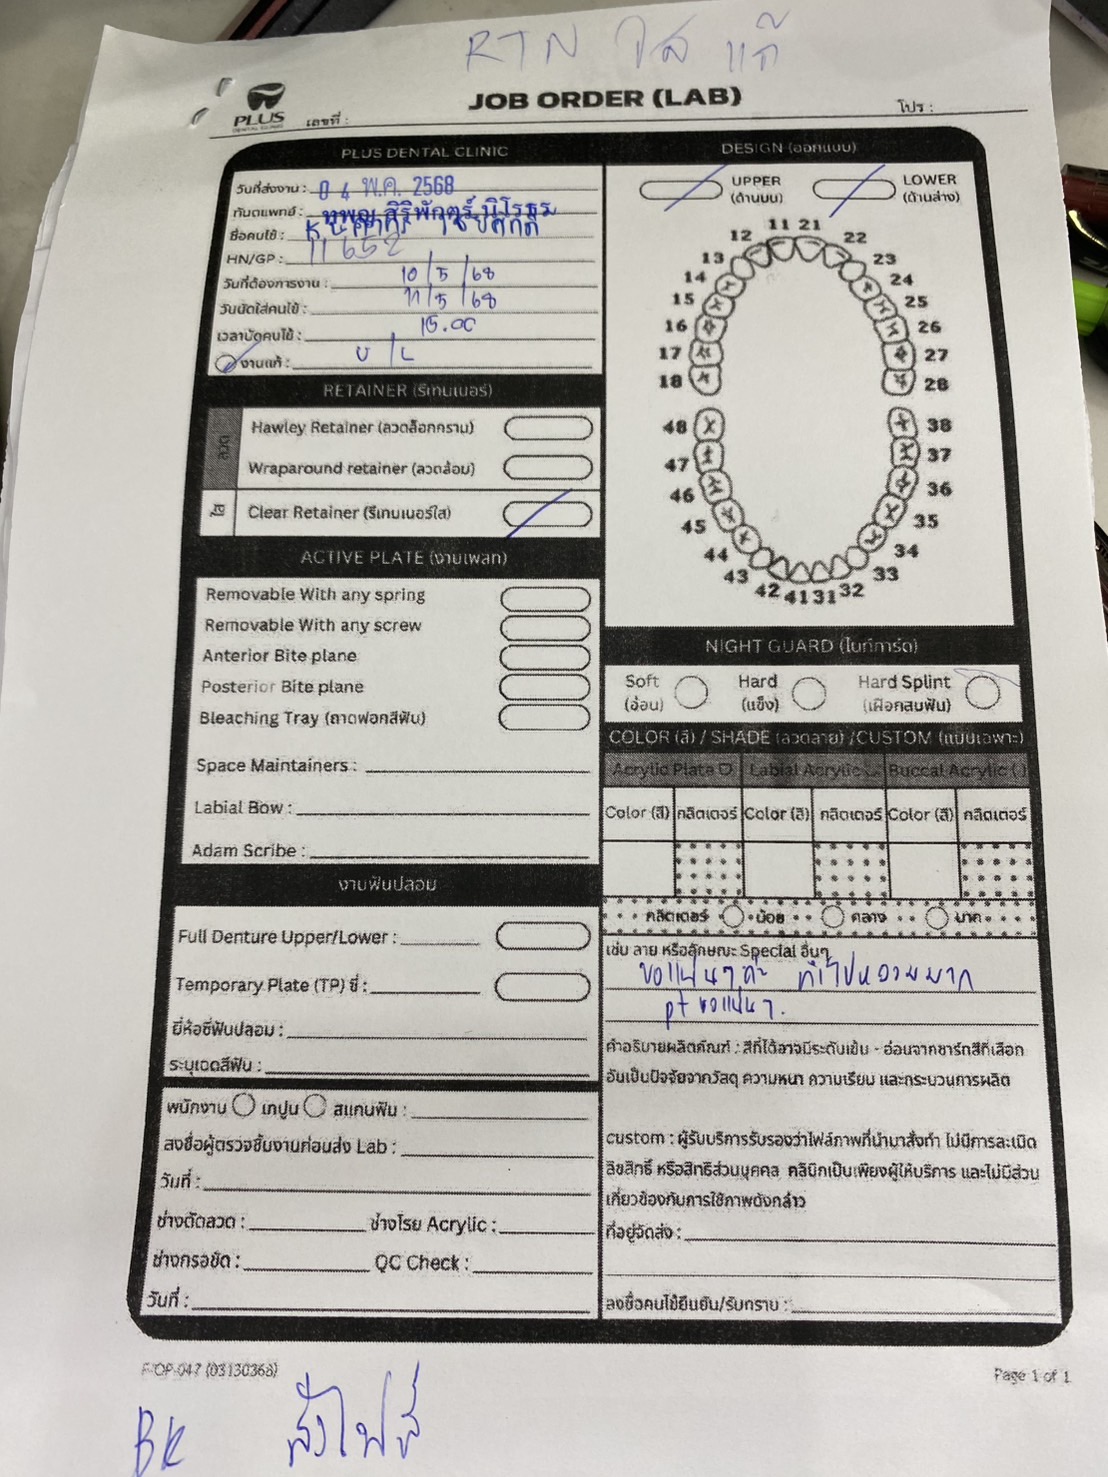 RTN ใส แก้
PLUS
DENTAL CLINIC
เลขที่ :
JOB ORDER (LAB)
โปร :
PLUS DENTAL CLINIC
วันที่ส่งงาน : 04 พ.ค. 2568
ทันตแพทย์ : ทพญ.สิริพักตร์ นิโรธร
ชื่อคนไข้ : K.
HN/GP : 11652
วันที่ต้องการงาน : 10/5/68
วันนัดใส่คนไข้ : 11/5/68
เวลานัดคนไข้ : 15.00
งานแก้ : U/L
RETAINER (รีเทนเนอร์)
ลวด
Hawley Retainer (ลวดล็อกกราม)
Wraparound retainer (ลวดล้อม)
ใส
Clear Retainer (รีเทนเนอร์ใส)
ACTIVE PLATE (งานเพลท)
Removable With any spring
Removable With any screw
Anterior Bite plane
Posterior Bite plane
Bleaching Tray (ถาดฟอกสีฟัน)
Space Maintainers :
Labial Bow :
Adam Scribe :
งานฟันปลอม
Full Denture Upper/Lower :
Temporary Plate (TP) ซี่ :
ยี่ห้อซี่ฟันปลอม :
ระบุเฉดสีฟัน :
พนักงาน เทปูน สแกนฟัน :
ลงชื่อผู้ตรวจชิ้นงานก่อนส่ง Lab :
วันที่ :
ช่างดัดลวด : ช่างโรย Acrylic :
ช่างกรอขัด : QC Check :
วันที่ :
DESIGN (ออกแบบ)
UPPER
(ด้านบน)
LOWER
(ด้านล่าง)
11 21
12 22
13 23
14 24
15 25
16 26
17 27
18 28
48 38
47 37
46 36
45 35
44 34
43 33
42 41 31 32
NIGHT GUARD (ไนท์การ์ด)
Soft
(อ่อน)
Hard
(แข็ง)
Hard Splint
(เฝือกสบฟัน)
COLOR (สี) / SHADE (ลวดลาย) /CUSTOM (แบบเฉพาะ)
Acrylic Plate Labial Acrylic Buccal Acrylic ( )
Color (สี) กลิตเตอร์ Color (สี) กลิตเตอร์ Color (สี) กลิตเตอร์
กลิตเตอร์ น้อย กลาง มาก
เช่น ลาย หรือลักษณะ Special อื่นๆ
ขอแน่นๆค่ะ ที่ทำไปหลวมมาก
pt ขอแน่นๆ.
คำอธิบายผลิตภัณฑ์ : สีที่ได้อาจมีระดับเข้ม - อ่อนจากชาร์ทสีที่เลือก
อันเป็นปัจจัยจากวัสดุ ความหนา ความเรียบ และกระบวนการผลิต
custom : ผู้รับบริการรับรองว่าไฟล์ภาพที่นำมาสั่งทำ ไม่มีการละเมิด
ลิขสิทธิ์ หรือสิทธิส่วนบุคคล คลินิกเป็นเพียงผู้ให้บริการ และไม่มีส่วน
เกี่ยวข้องกับการใช้ภาพดังกล่าว
ที่อยู่จัดส่ง :
ลงชื่อคนไข้ยืนยัน/รับทราบ :
F-OP-047 (03130368)
Page 1 of 1
BK ส่งไฟล์